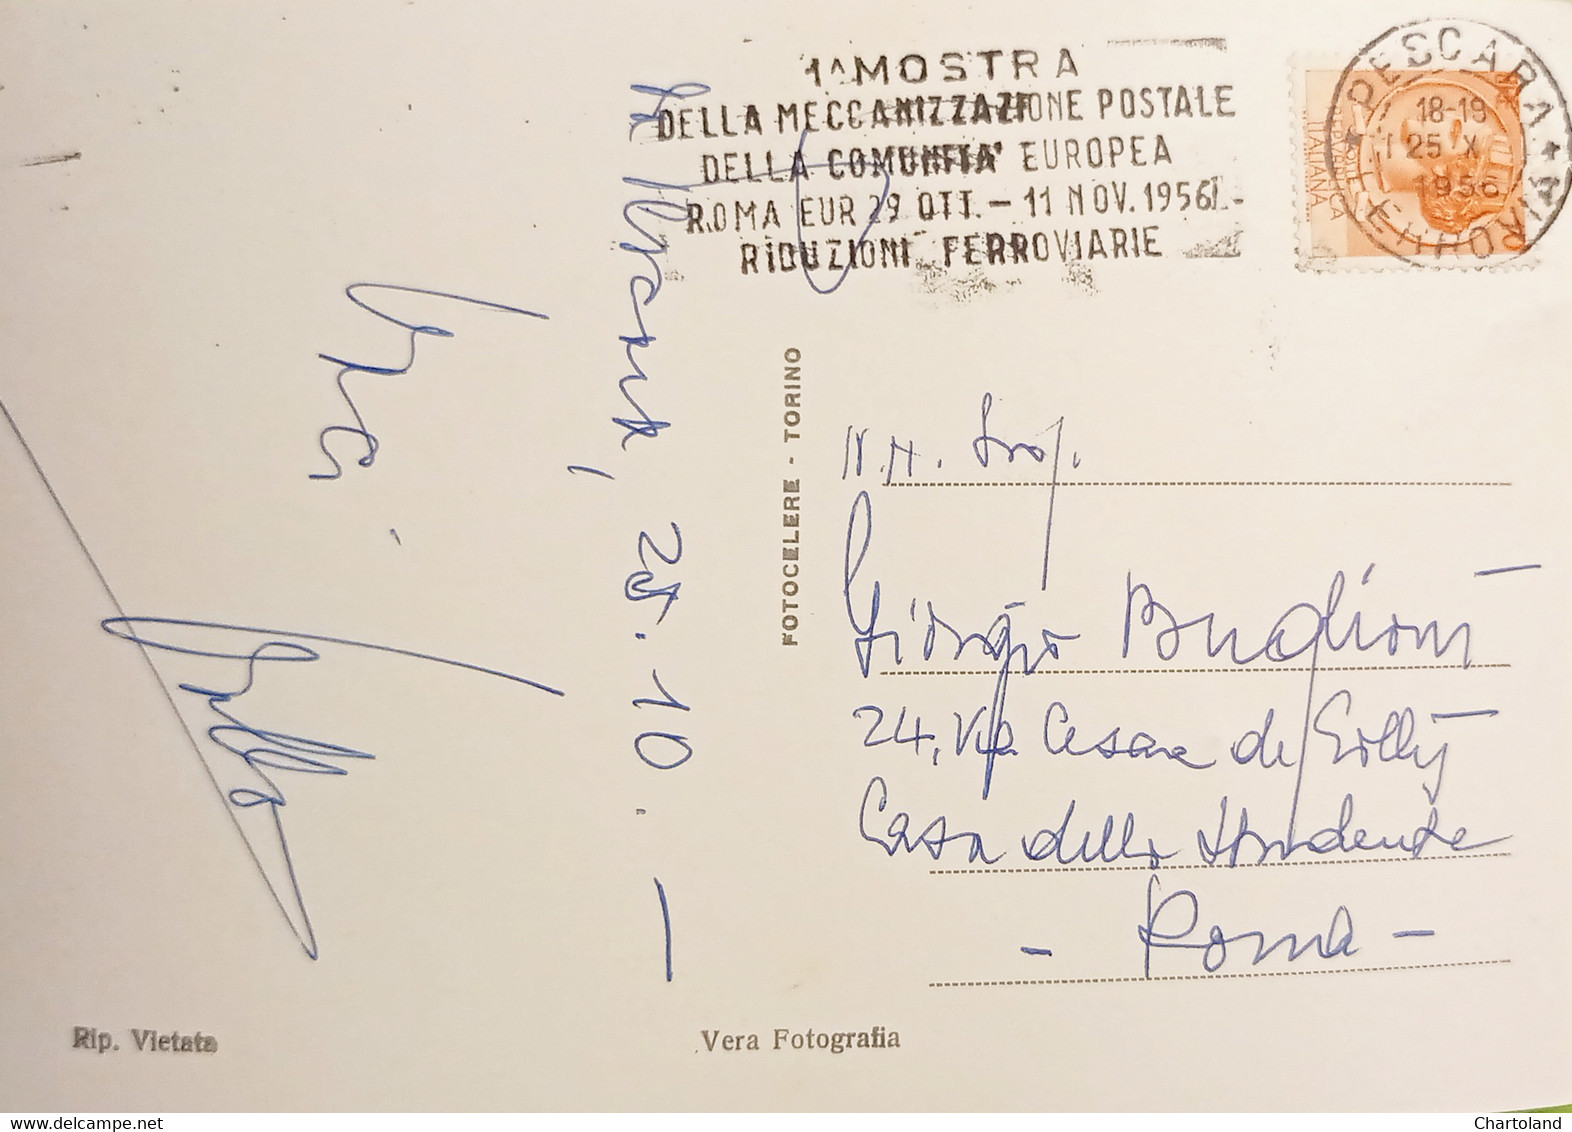 1ᴬ MOSTRA
DELLA MECCANIZZAZIONE POSTALE
DELLA COMUNITA' EUROPEA
ROMA EUR 29 OTT. - 11 NOV. 1956
RIDUZIONI FERROVIARIE
PESCARA
FERROVIA
18-19
25 X
1956
REPVBBLICA
ITALIANA
Pescara, 25.10.-
FOTOCELERE - TORINO
N.H. Prof.
Giorgio
24, Via Cesare de Lollis
Casa dello Studente
- Roma -
Rip. Vietata
Vera Fotografia
Chartoland